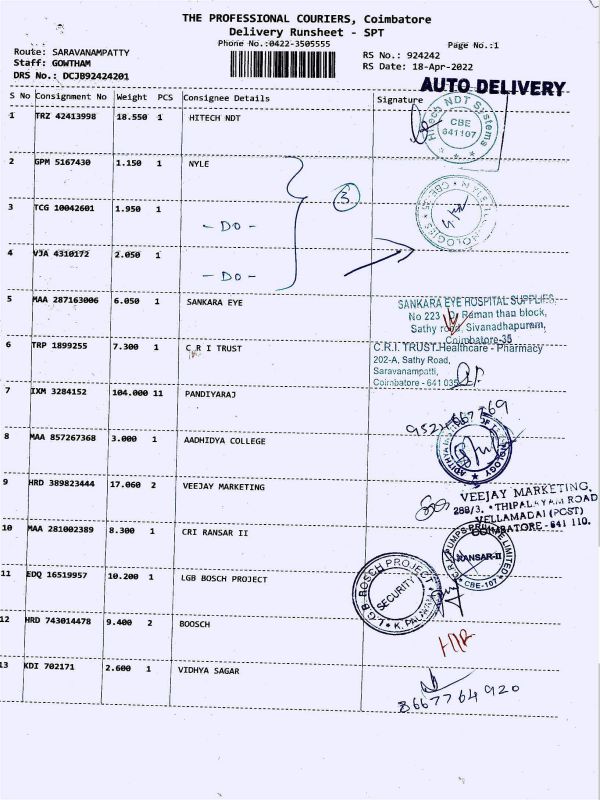 THE PROFESSIONAL COURIERS, Coimbatore
Delivery Runsheet - SPT
Phone No.:0422-3505555
Page No.:1
Route: SARAVANAMPATTY
Staff: GOWTHAM
DRS No.: DCJB92424201
RS No.: 924242
RS Date: 18-Apr-2022
AUTO DELIVERY
S No Consignment No Weight PCS Consignee Details Signature
1 TRZ 42413998 18.550 1 HITECH NDT
Hitech NDT Systems
CBE
641107
2 GPM 5167430 1.150 1 NYLE
3
3 TCG 10042601 1.950 1
- DO -
4 VJA 4310172 2.050 1
- DO -
5 MAA 287163006 6.050 1 SANKARA EYE
SANKARA EYE HOSPITAL SUPPLIES,
No 223 Raman than block,
Sathy road, Sivanadhapuram,
Coimbatore-35
6 TRP 1899255 7.300 1 C R I TRUST
C.R.I. TRUST Healthcare - Pharmacy
202-A, Sathy Road,
Saravanampatti,
Coimbatore - 641 035
7 IXM 3284152 104.000 11 PANDIYARAJ
8 MAA 857267368 3.000 1 AADHIDYA COLLEGE
9 HRD 389823444 17.060 2 VEEJAY MARKETING
VEEJAY MARKETING,
288/3, THIPALAYAM ROAD
VELLAMADAI (POST)
COIMBATORE - 641 110.
10 MAA 281002389 8.300 1 CRI RANSAR II
C.R.I. PUMPS PRIVATE LIMITED
RANSAR-II
CBE-107
11 EDQ 16519957 10.200 1 LGB BOSCH PROJECT
L.G.B BOSCH PROJECT
SECURITY
12 HRD 743014478 9.400 2 BOOSCH
13 KDI 702171 2.600 1 VIDHYA SAGAR
8667764920